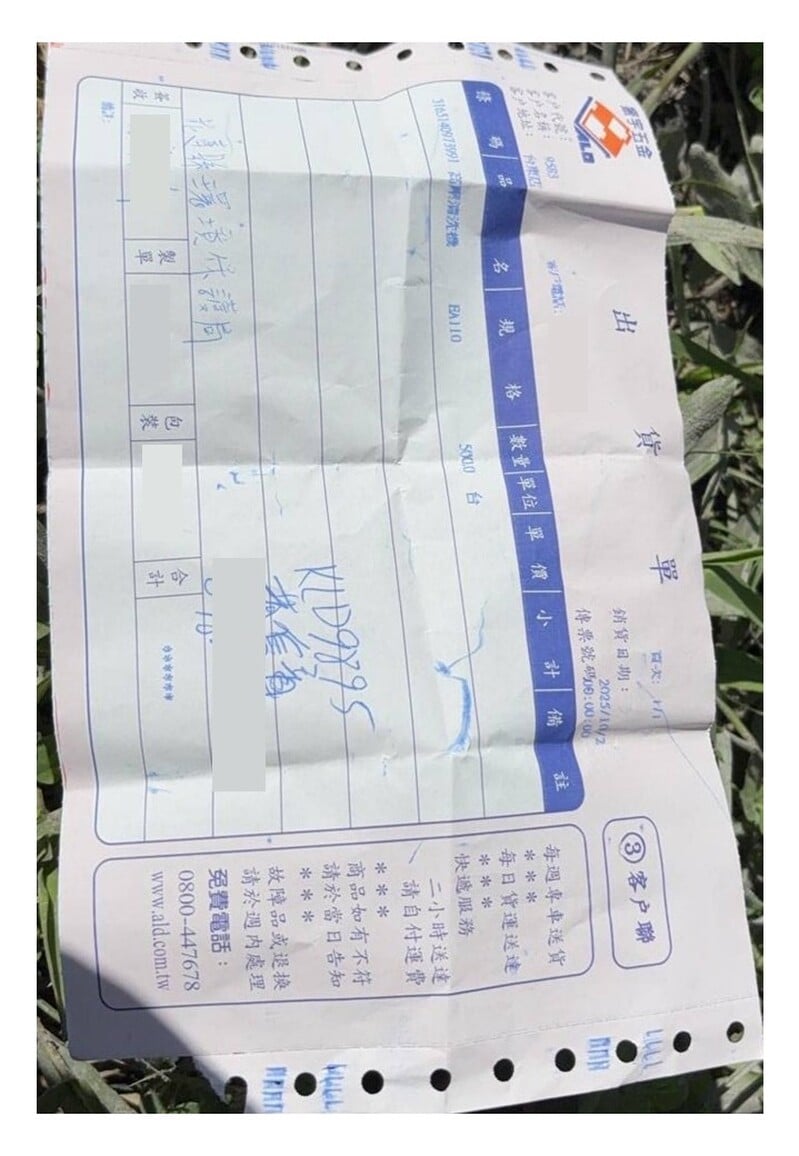 ALD
寶宇五金
出貨單
客戶代號： 9583
客戶名稱：
客戶地址：
客戶電話：
頁次： 1/1
銷貨日期： 2025/10/2
傳票號碼 00:00:00
條碼 品名規格 數量 單位 單價 小計 備註
3165140973991 高壓清洗機 EA110 500.0 台
KLD9895
簽收
製單
包裝
合計 ******
備註：
③客戶聯
每週專車送貨
***
每日貨運送達
***
快遞服務
二小時送達
請自付運費
***
商品如有不符
請於當日告知
***
故障品或退換
請於週內處理
免費電話：
0800-447678
www.ald.com.tw